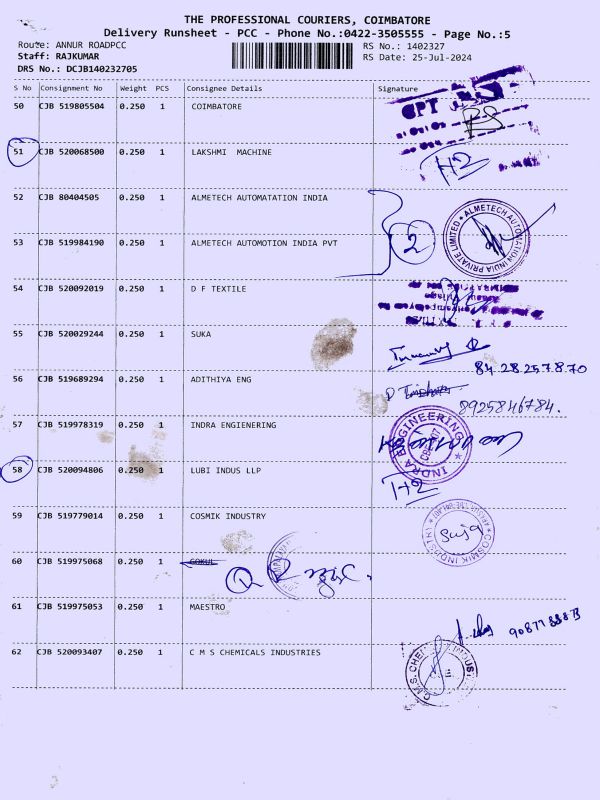 THE PROFESSIONAL COURIERS, COIMBATORE
Delivery Runsheet - PCC - Phone No.:0422-3505555 - Page No.:5
Route: ANNUR ROADPCC RS No.: 1402327
Staff: RAJKUMAR RS Date: 25-Jul-2024
DRS No.: DCJB140232705
S No Consignment No Weight PCS Consignee Details Signature
50 CJB 519805504 0.250 1 COIMBATORE
51 CJB 520068500 0.250 1 LAKSHMI MACHINE
52 CJB 80404505 0.250 1 ALMETECH AUTOMATATION INDIA
53 CJB 519984190 0.250 1 ALMETECH AUTOMOTION INDIA PVT 2
ALMETECH AUTOMATION INDIA PRIVATE LIMITED
54 CJB 520092019 0.250 1 D F TEXTILE
55 CJB 520029244 0.250 1 SUKA
84 28 25 7 8 70
56 CJB 519689294 0.250 1 ADITHIYA ENG
8925846784.
57 CJB 519978319 0.250 1 INDRA ENGIENERING
INDRA ENGINEERING
58 CJB 520094806 0.250 1 LUBI INDUS LLP
59 CJB 519779014 0.250 1 COSMIK INDUSTRY
COSMIK INDUSTRY
60 CJB 519975068 0.250 1 GOKUL
61 CJB 519975053 0.250 1 MAESTRO
62 CJB 520093407 0.250 1 C M S CHEMICALS INDUSTRIES